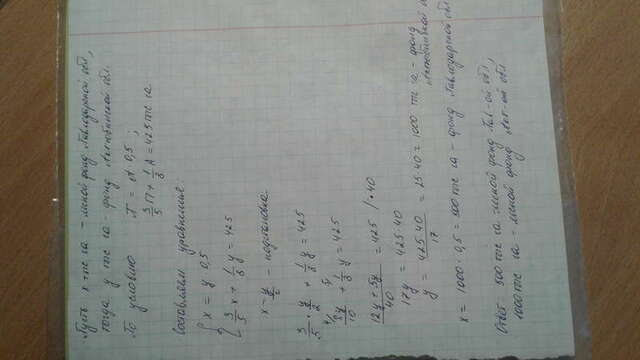 Пусть x тыс га - лесной фонд Павлодарской обл,
тогда y тыс га - фонд Актюбинской обл.
По условию П = А 0,5 ;
3/5 П + 1/8 А = 425 тыс га
Составляем уравнения:
{ x = y · 0,5
3/5 x + 1/8 y = 425
x = y/2 - подстановка.
3/5 · y/2 + 1/8 y = 425
4/ 3y/10 + 5/ 1/8 y = 425
12y + 5y / 40 = 425 / · 40
17y = 425 · 40
y = 425 · 40 / 17 = 25 · 40 = 1000 тыс га - фонд
Актюбинской
x = 1000 · 0,5 = 500 тыс га - фонд Павлодарской обл
Ответ: 500 тыс га лесной фонд Пав-ой обл,
1000 тыс га - лесной фонд Акт-ой обл.